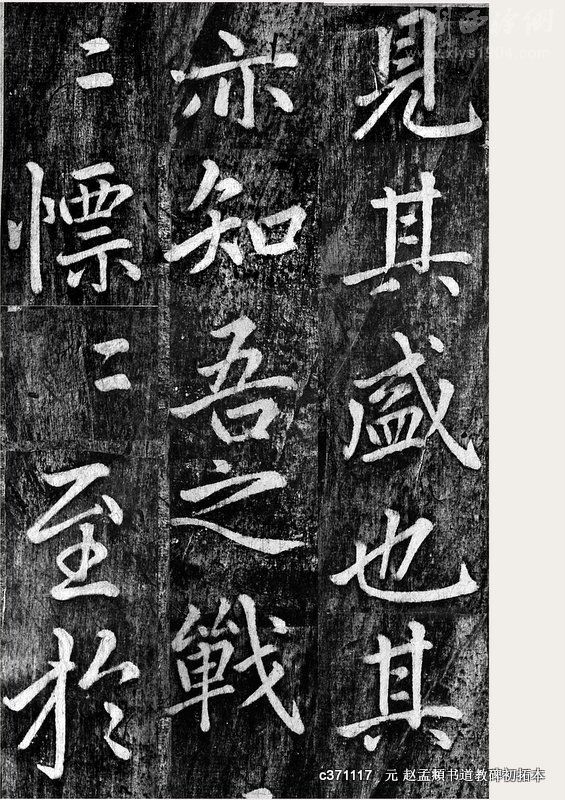 見其盛也其
亦知吾之戰
〻慓〻至於
c371117 . 元 赵孟頫书道教碑初拓本